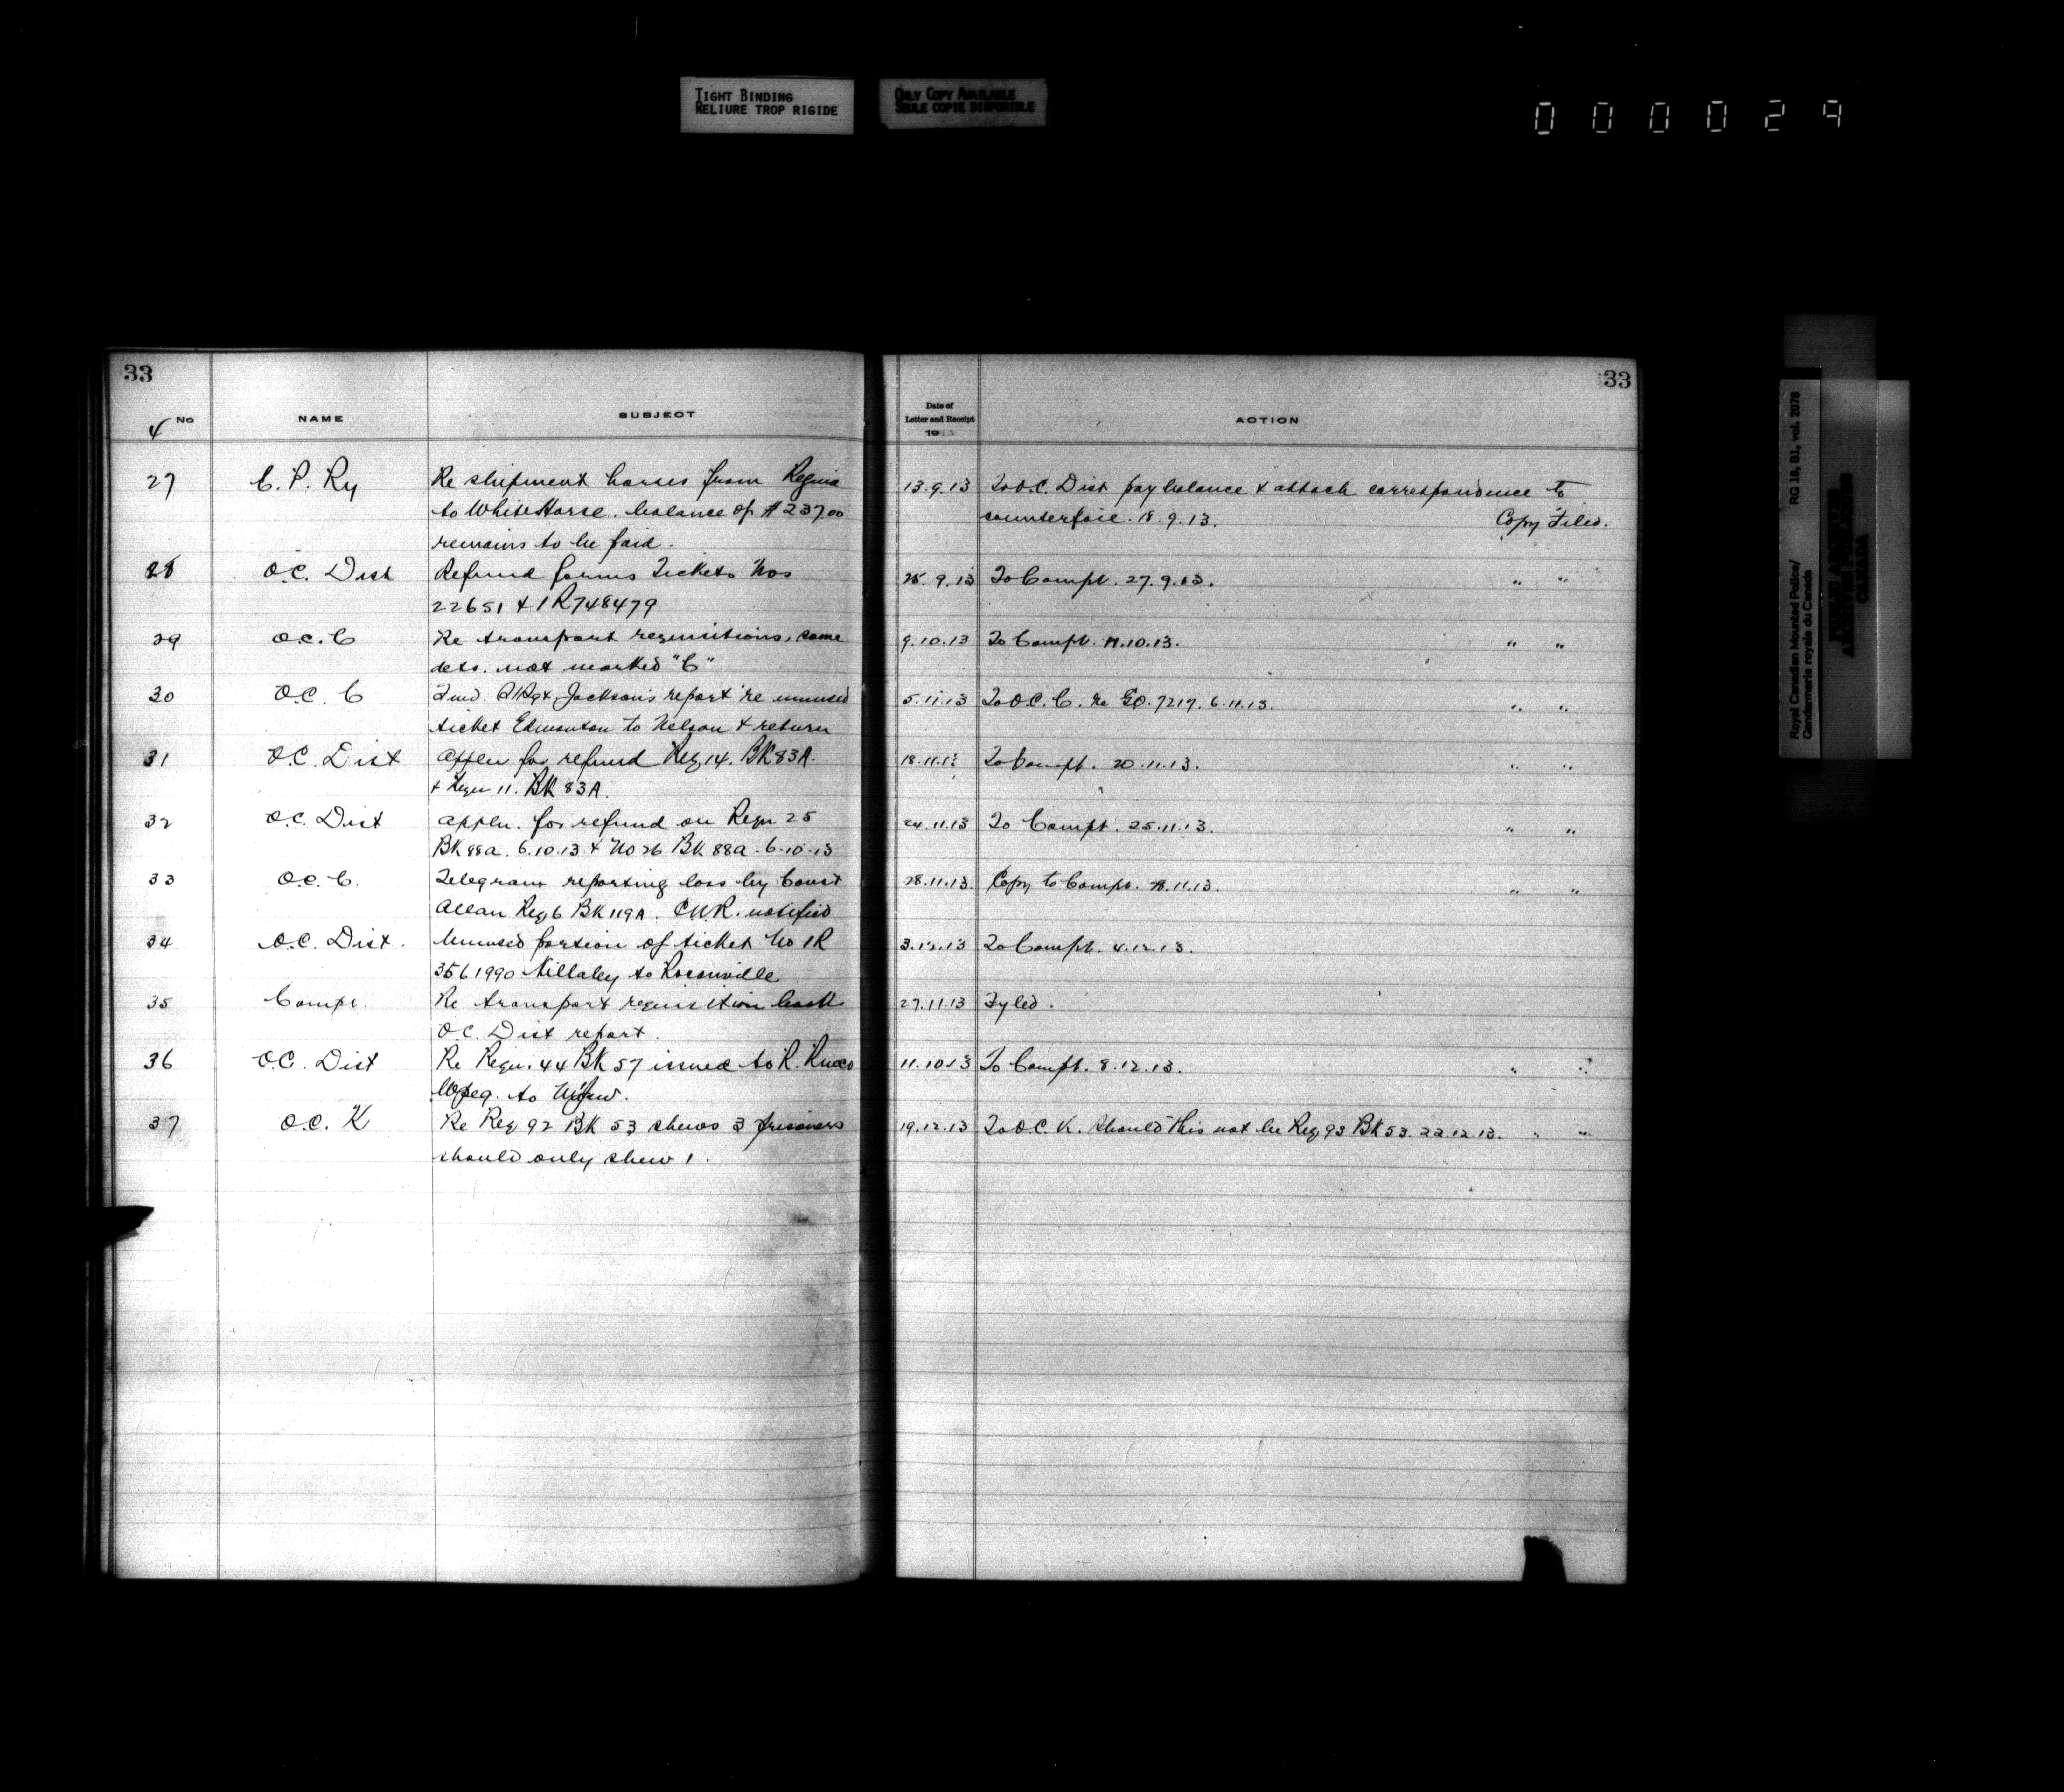 TIGHT BINDING
RELIURE TROP RIGIDE
ONLY COPY AVAILABLE
SEULE COPIE DISPONIBLE
000029
33
4 No NAME SUBJECT
27 C. P. Ry Re shipment horses from Regina
to White Horse. balance of $237.00
remains to be paid.
28 O.C. Dist Refund forms Tickets Nos
22651 & 1R748479
29 O.C. C Re transport requisitions, some
dets. not marked "C"
30 O.C. C Jackson's report re unused
ticket Edmonton to Nelson & return
31 O.C. Dist Applen for refund Req 14. BK 83A.
& Reqn 11. BK 83A.
32 O.C. Dist Applen. for refund on Reqn 25
BK 88a. 6.10.13 & No 26 BK 88a. 6.10.13
33 O.C. C. Telegram reporting loss by Const
Allan Req 6 BK 119A. C.N.R. notified
34 O.C. Dist. Unused portion of ticket No 1R
3561990 to Rocanville
35 Compt. Re transport requisition books
O.C. Dist report.
36 O.C. Dist Re Reqn. 44 BK 57 issued to R.
Wpeg. to
37 O.C. K Re Req 92 BK 53 shews 3 prisoners
should only shew 1.
33
Date of
Letter and Receipt
191 ACTION
13.9.13 To O.C. Dist pay balance & attach correspondence to
counterfoil. 18.9.13. Copy Filed.
25.9.13 To Compt. 27.9.13. " "
9.10.13 To Compt. 11.10.13. " "
5.11.13 To O.C. C. re G.O. 7217. 6.11.13. " "
18.11.13 To Compt. 20.11.13. " "
24.11.13 To Compt. 25.11.13. " "
28.11.13. Copy to Compt. 28.11.13. " "
3.12.13 To Compt. 4.12.13.
27.11.13 Fyled.
11.10.13 To Compt. 8.12.13. " "
19.12.13 To O.C. K. Should this not be Req 93 BK 53. 22.12.13. " "
Royal Canadian Mounted Police/
Gendarmerie royale du Canada
RG 18, B1, vol. 2078
PUBLIC ARCHIVES
ARCHIVES PUBLIQUES
CANADA